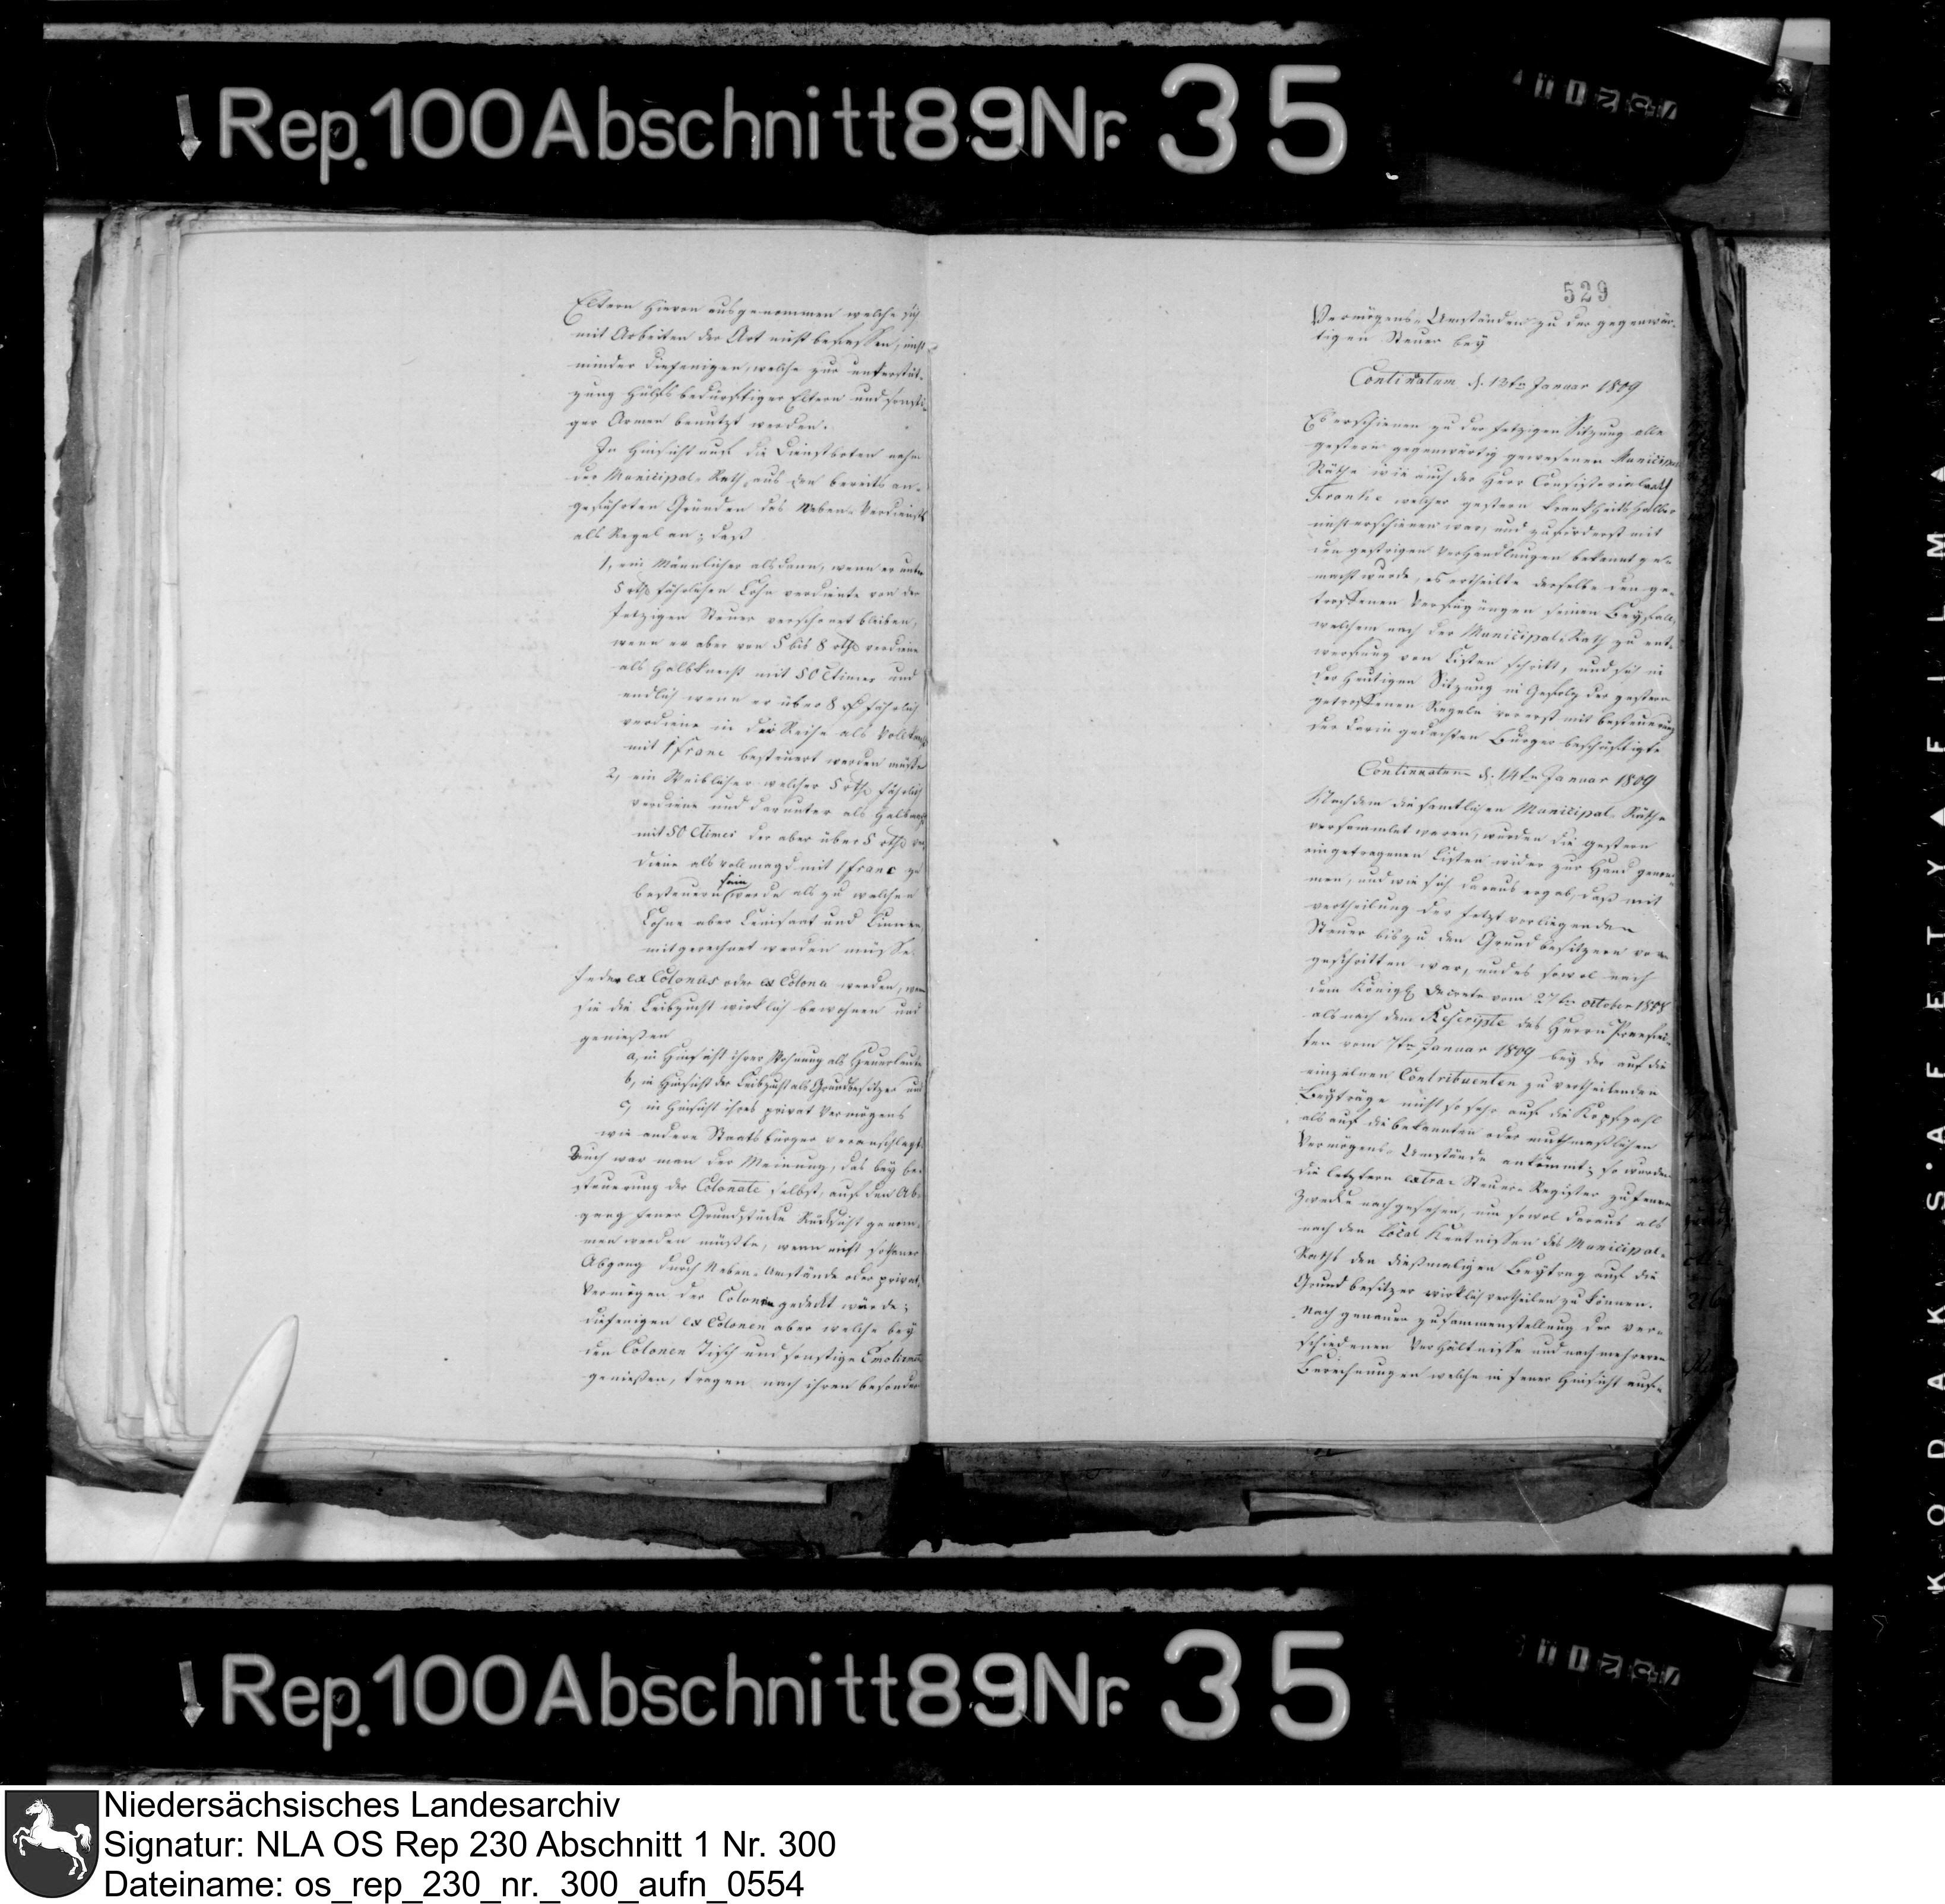 Rep. 100 Abschnitt 89 Nr. 35
Eltern hievon ausgenommen welche sich
mit Arbeiten der Art nicht befassen, nicht
minder diejenigen, welche zur unterstüt-
zung hülfsbedürftiger Eltern und sonsti-
ger Armen benutzt werden.
In Hinsicht auf die Dienstboten nahm
der Municipal-Rath aus den bereits an-
geführten Gründen des Neben-Verdienstes
als Regel an; daß
1, ein Männlicher alsdann, wenn er unter
5 rth jährlichen Lohn verdiente von der
jetzigen Steuer verschonet bleiben,
wenn er aber von 5 bis 8 rth verdiene
als Halbknecht mit 50 Ctimes und
endlich wenn er über 8 rth jährlich
verdiene in die Reihe als Vollknecht
mit 1 franc besteuert werden müsse
2, ein Weiblicher welcher 5 rth jährlich
verdiene und darunter als Halbmagd
mit 50 Ctimes der aber über 5 rth ver
diene als vollmagd mit 1 franc zu
besteuern sein werde als zu welchen
Lohne aber Leinsaat und Linnen
mitgerechnet werden müsse.
Jeder ex Colonus oder ex Colona werden, wenn
sie die Leibzucht wirklich bewohnen und
genießen
a, in Hinsicht ihrer Wohnung als Heuerleute
b, in Hinsicht der Leibzucht als Grundbesitzer und
c, in Hinsicht ihres privat Vermögens
wie andere Staatsbürger veranschlagt.
Auch war man der Meinung, das bey be
steuerung der Colonate selbst, auf den Ab-
gang jener Grundstücke Rücksicht genom-
men werden müßte, wenn nicht sothaner
Abgang durch Neben-Umstände oder privat
Vermögen der Colonen gedeckt würde;
diejenigen ex Colonen aber welche bey
den Colonen Tisch und sonstige Emolumente
genießen, tragen nach ihren besondern
529
Vermögens-Umständen zu der gegenwär-
tigen Steuer bey
Continuatum d. 13ten Januar 1809
Es erschienen zu der jetzigen Sitzung alle
gestern gegenwärtig gewesenen Municipal
Räthe wie auch der Herr Consistorialrath
welcher gestern Krankheits halber
nicht erschienen war, und zuförderst mit
den gestrigen Verhandlungen bekannt ge-
macht wurde, es ertheilte derselbe den ge-
troffenen Verfügungen seinen Beyfall,
welchem nach der Municipal-Rath zu ent-
werfung von Listen schritt, und sich in
der heutigen Sitzung in Gefolg der gestern
getroffenen Regeln vorerst mit besteuerung
der darin gedachten Bürger beschäftigte
Continuatum d. 14ten Januar 1809
Nachdem die samtlichen Municipal-Räthe
versammlet waren, wurden die gestern
eingetragenen Listen wider zur Hand genom-
men, und wie sich daraus ergab, daß mit
vertheilung der jetzt vorliegenden
Steuer bis zu den Grundbesitzern vor-
geschritten war, und es sowol nach
dem Königl Decrete vom 27ten october 1808
als nach dem Rescripte des Herrn Praefec-
ten vom 7ten Januar 1809 bey der auf die
einzelnen Contribuenten zu vertheilenden
Beyträge nicht so sehr auf die Kopfzahl
als auf die bekannten oder muthmaßlichen
Vermögens-Umstände ankömmt; so wurden
die letztern extra-Steuer-Register zu jenem
Zwecke nachgesehen, um sowol daraus als
nach den Local Kentnissen des Municipal-
Raths den dießmaligen Beytrag auf die
Grundbesitzer wirklich vertheilen zu können.
Nach genauer zusammenstellung der ver-
schiedenen Verhältnisse und nach mehreren
Berechnungen welche in jener Hinsicht auf-
Rep. 100 Abschnitt 89 Nr. 35
KODAK S·A·F·E·T·Y FILM
Niedersächsisches Landesarchiv
Signatur: NLA OS Rep 230 Abschnitt 1 Nr. 300
Dateiname: os_rep_230_nr._300_aufn_0554